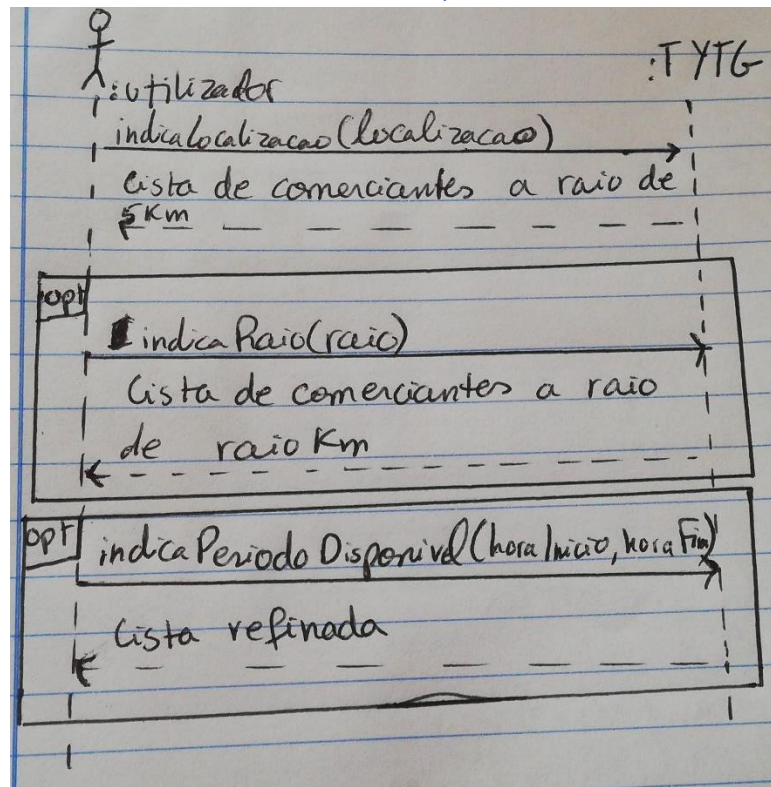 :utilizador
:TYTG
indicalocalizacao(localizacao)
Lista de comerciantes a raio de
5Km
opt
indicaRaio(raio)
Lista de comerciantes a raio
de raio Km
opt
indicaPeriodoDisponivel(horaInicio, horaFim)
Lista refinada